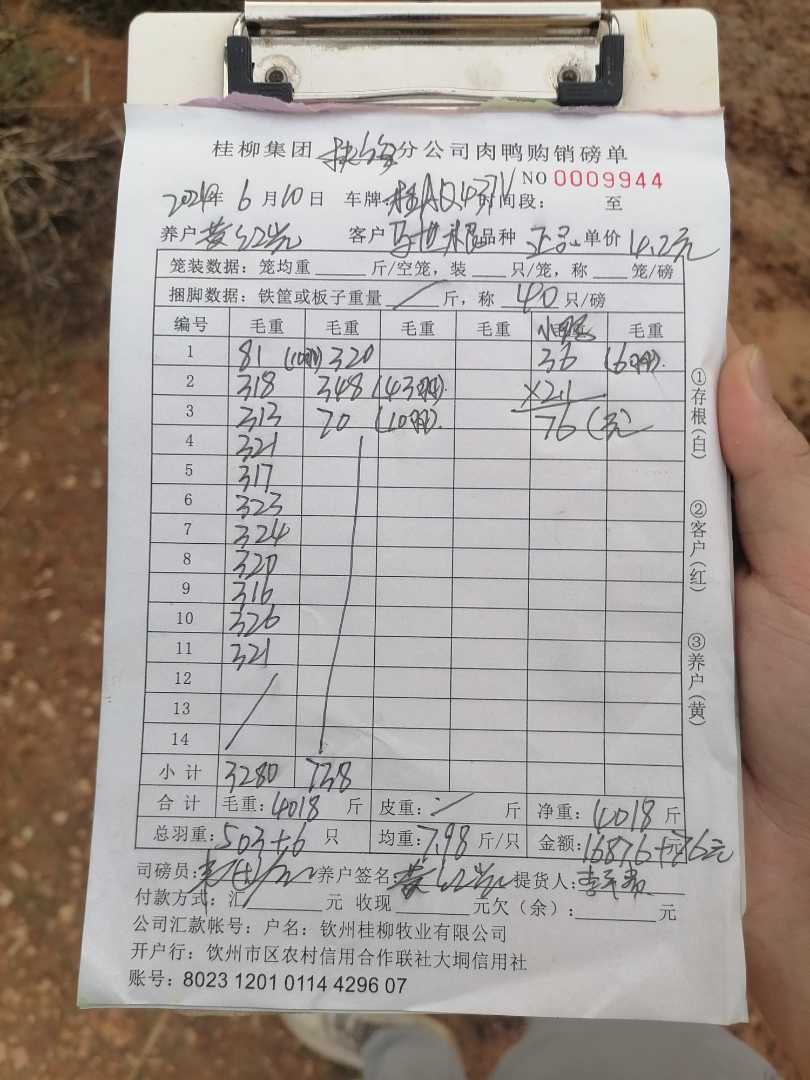 桂柳集团 分公司肉鸭购销磅单
NO 0009944
2024年 6月10日 车牌: 时间段: 至
养户 客户 品种 单价 4.2元
笼装数据: 笼均重 斤/空笼, 装 只/笼, 称 笼/磅
捆脚数据: 铁筐或板子重量 / 斤, 称 40 只/磅
编号 毛重 毛重 毛重 毛重 小鸭 毛重
1 81 (10羽) 320 36 (6羽).
2 318 348 (43羽). ×2.1
3 313 70 (10羽). 76 (元)
4 321
5 317
6 323
7 324
8 320
9 316
10 326
11 321
12
13
14
小计 3280 738
合计 毛重: 4018 斤 皮重: / 斤 净重: 4018 斤
总羽重: 503+6 只 均重: 7.98 斤/只 金额: 16876+76元
司磅员: 养户签名: 提货人:
付款方式: 汇 元 收现 元欠(余): 元
公司汇款帐号: 户名: 钦州桂柳牧业有限公司
开户行: 钦州市区农村信用合作联社大垌信用社
账号: 8023 1201 0114 4296 07
①存根(白)
②客户(红)
③养户(黄)